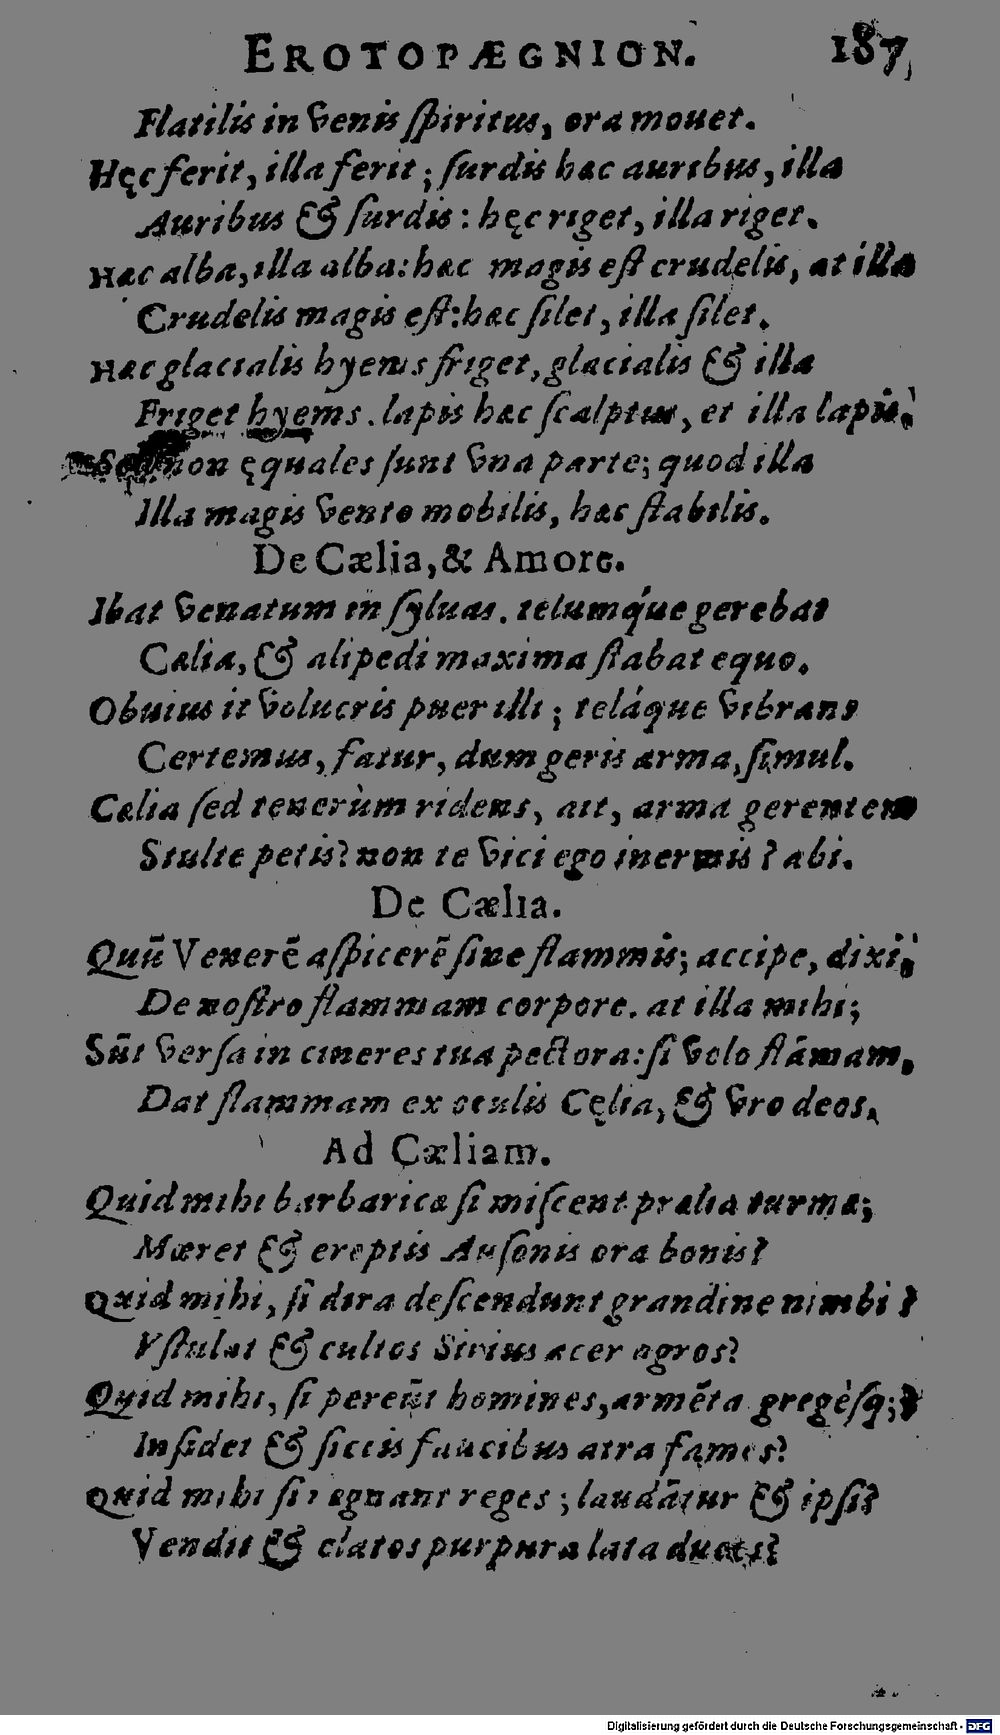 EROTOPÆGNION. 187
Flatilis in venis ſpiritus, ora mouet.
Hęc ferit, illa ferit; ſurdis hæc auribus, illa
Auribus & ſurdis: hęc riget, illa riget.
Hæc alba, illa alba: hæc magis eſt crudelis, at illa
Crudelis magis eſt: hæc ſilet, illa ſilet.
Hæc glacialis hyems friget, glacialis & illa
Friget hyems. lapis hæc ſcalptus, et illa lapis.
non ęquales ſunt vna parte; quod illa
Illa magis vento mobilis, hæc ſtabilis.
De Cælia, & Amore.
Ibat venatum in ſyluas. telumq́ue gerebat
Cælia, & alipedi maxima ſtabat equo.
Obuius it volucris puer illi; teláque vibrans
Certemus, fatur, dum geris arma, ſimul.
Cælia ſed tenerùm ridens, ait, arma gerentem
Stulte petis? non te vici ego inermis? abi.
De Cælia.
Quũ Venerẽ aſpicerẽ ſine flammis; accipe, dixi,
De noſtro flammam corpore. at illa mihi;
Sũt verſa in cineres tua pectora: ſi volo flãmam,
Dat flammam ex oculis Cęlia, & vro deos.
Ad Cæliam.
Quid mihi barbaricæ ſi miſcent prælia turmæ;
Mæret & ereptis Auſonis ora bonis?
Quid mihi, ſi dira deſcendunt grandine nimbi?
Vſtulat & cultos Sirius acer agros?
Quid mihi, ſi pereũt homines, armẽta gregèſq;?
Inſidet & ſiccis faucibus atra fames?
Quid mihi ſi regnant reges; laudãtur & ipſi?
Vendit & elatos purpura lata duces?
Digitalisierung gefördert durch die Deutsche Forschungsgemeinschaft - DFG